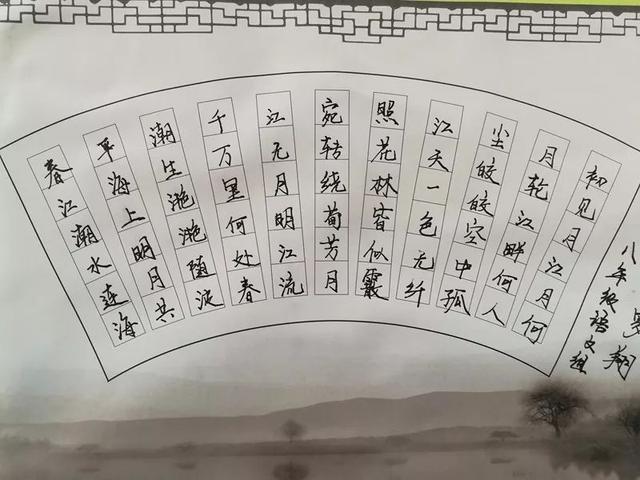 春江潮水连海
平海上明月共
潮生滟滟随波
千万里何处春
江无月明江流
宛转绕荀芳月
照花林皆似霰
江天一色无纤
尘皎皎空中孤
月江畔何人
初见月江月何
八年级语文组
罗翔